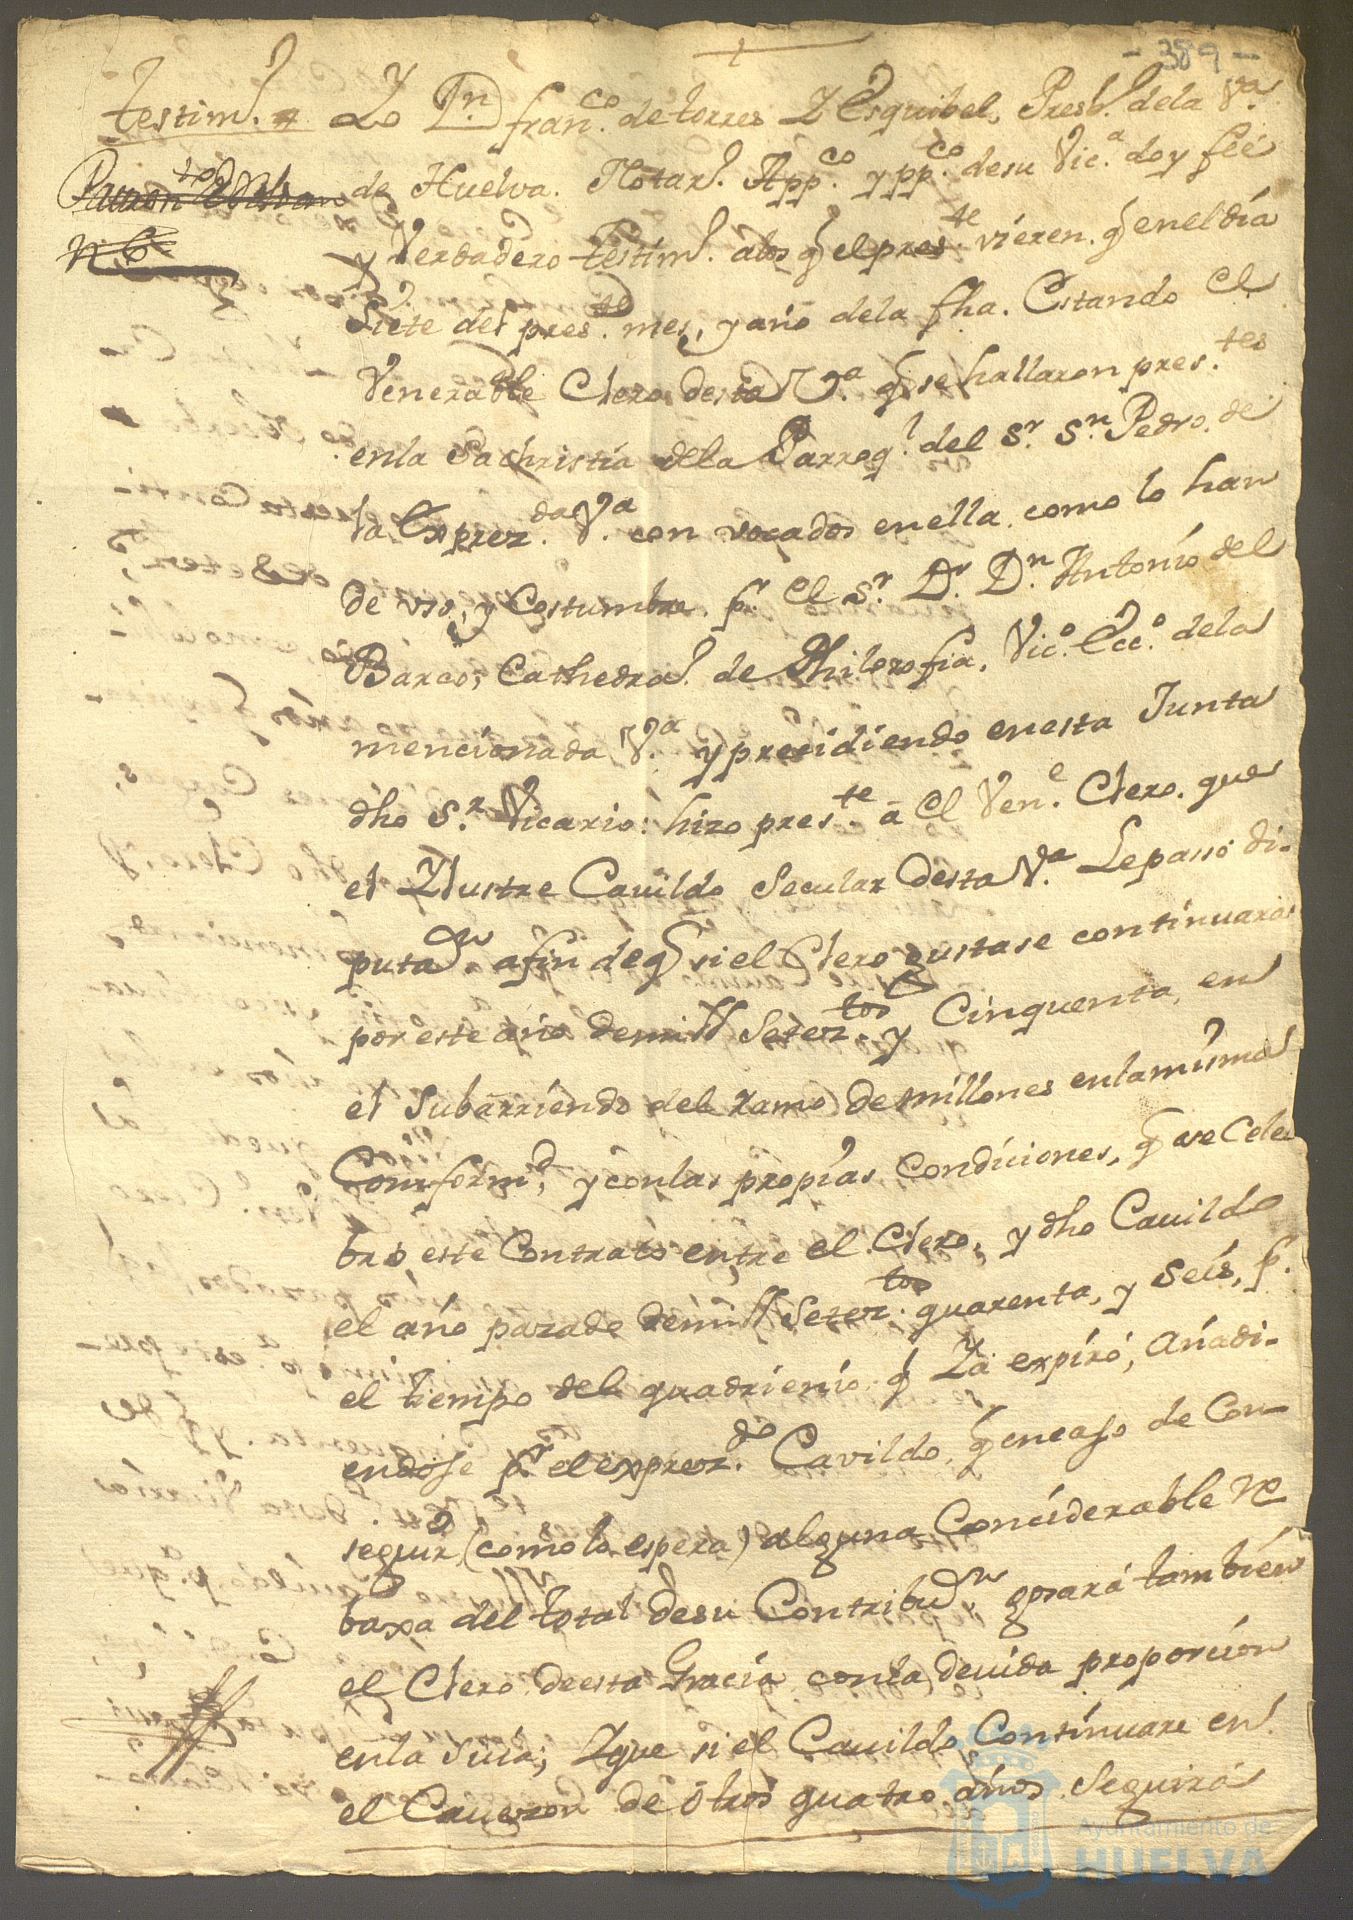 - 389 -
Testim.º Yo Dn franco. de torres Y Esquibel, Presb.º dela Va.
de Huelva. Notar.º Appco. y ppco. desu Vic.a doy feé
y Verdadero Testim.º alos q̃ el preste. vieren. q̃ enel día
Siete del preste. mes, y año dela fha. Estando el
Venerable Clero desta Va. q̃ se hallaron prestes.
enla Sachristía dela Parroql. del Sr. Sn. Pedro. de
la Exprezda. Va. con vocados enella. como lo han
de uso, y Costumbre. pr. el Sr. Dr. Dn. Antonío del
Barco, Cathedra.º de Philosofia, Vic.º Ecc.º dela
mencionada Va. y presidiendo enesta Junta
dho Sr. Vicario: hizo preste. â el Vene. Clero. que
el Ylustre Cauildo Secular desta Va. Lepasó di-
putaon. afin deq̃ si el Clero gustase continuar
por este año demill Seteztos. y Cinquenta, en
el Subarriendo del ramo de millones enlamisma
Conformd., y conlas propías Condiciones, q̃ se Cele
bró este Contrato entre el Clero, y dho Cauildo
el año pazado demill Seteztos. quarenta, y Seis, pr.
el tiempo del quadrienio q̃ Ya expiró, añadi-
endose pr. el exprezdo. Cavildo, q̃ encaso de Con-
seguir (como lo espera) alguna Conciderable re
baxa del total desu Contribuon. gosará también
el Clero deesta Gracia conla devida proporcion
enla Suia; Yque si el Cauildo Continuare en
el Cauezon de otros quatro años Seguirá
Ayuntamiento de
HUELVA